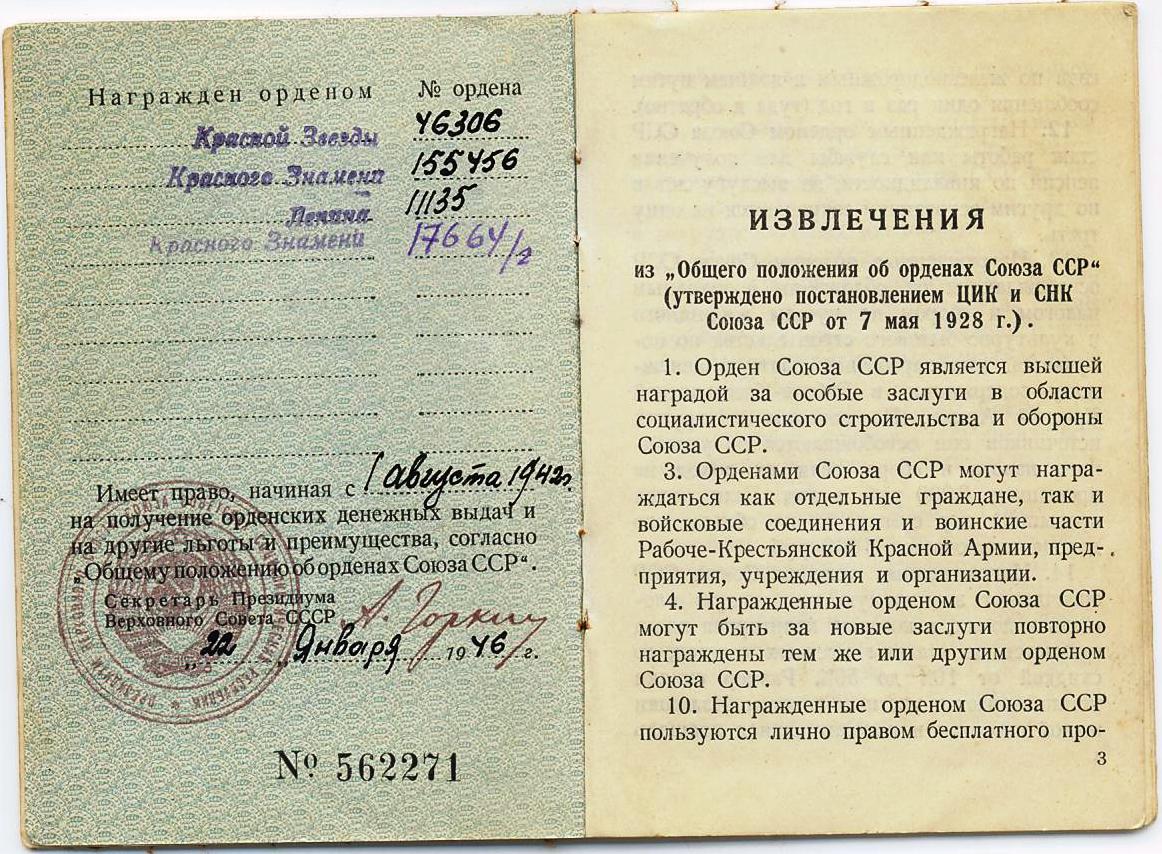 Награжден орденом № ордена
Красной Звезды 46306
Красного Знамени 155456
Ленина 11135
Красного Знамени 17664/2
Имеет право, начиная с 1 августа 1942г.
на получение орденских денежных выдач и
на другие льготы и преимущества, согласно
„Общему положению об орденах Союза ССР“.
Секретарь Президиума
Верховного Совета СССР А. Горкин
„22„ Января 1946 г.
№ 562271
ИЗВЛЕЧЕНИЯ
из „Общего положения об орденах Союза ССР“
(утверждено постановлением ЦИК и СНК
Союза ССР от 7 мая 1928 г.).
1. Орден Союза ССР является высшей
наградой за особые заслуги в области
социалистического строительства и обороны
Союза ССР.
3. Орденами Союза ССР могут награ-
ждаться как отдельные граждане, так и
войсковые соединения и воинские части
Рабоче-Крестьянской Красной Армии, пред-
приятия, учреждения и организации.
4. Награжденные орденом Союза ССР
могут быть за новые заслуги повторно
награждены тем же или другим орденом
Союза ССР.
10. Награжденные орденом Союза ССР
пользуются лично правом бесплатного про-
3